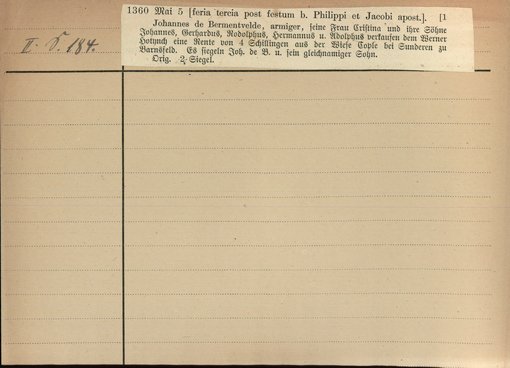 1360 Mai 5 [feria tercia post festum b. Philippi et Jacobi apost.]. [1
Johannes de Bermentvelde, armiger, seine Frau Cristina und ihre Söhne
Johannes, Gerhardus, Rodolphus, Hermannus u. Adolphus verkaufen dem Werner
Hotynch eine Rente von 4 Schillingen aus der Wiese Cople bei Sunderen zu
Barnsfeld. Es siegeln Joh. de B. u. sein gleichnamiger Sohn.
Orig. 2 Siegel.
II. 184.